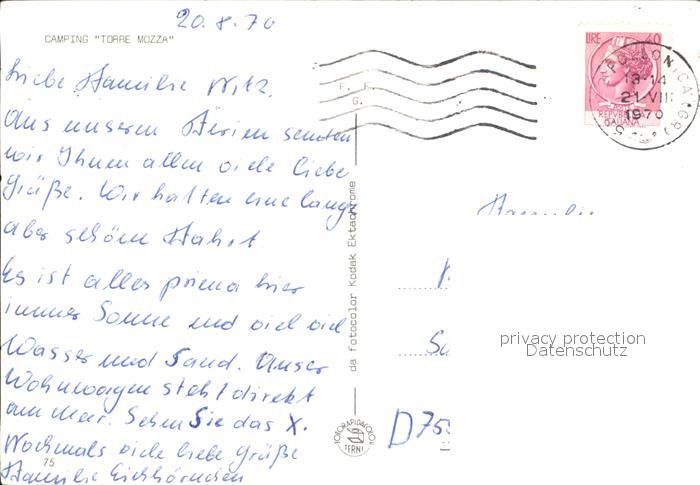 20.8.70
CAMPING "TORRE MOZZA"
Liebe Familie Witz.
Aus unseren Ferien senden
wir Ihnen allen viele liebe
Grüße. Wir hatten eine lange
aber schöne Fahrt
Es ist alles prima hier
immer Sonne und viel viel
Wasser und Sand. Unser
Wohnwagen steht direkt
am Meer. Sehen Sie das X.
Nochmals viele liebe Grüße
Familie Eichhörnchen
75
da fotocolor Kodak Ektachrome
TERNI
LIRE 40
REPVBBLICA
ITALIANA
13-14
21 VIII
1970
Familie
D 75
privacy protection
Datenschutz